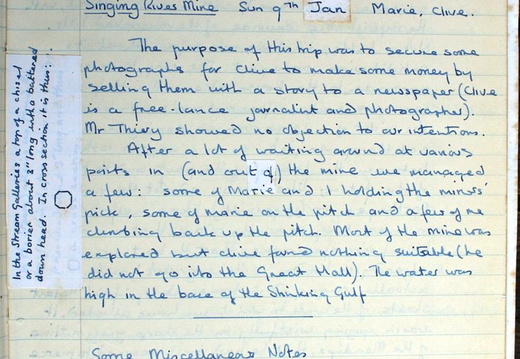 Singing River Mine Sun 9th Jan Marie, Clive.
The purpose of this trip was to secure some
photographs for Clive to make some money by
selling them with a story to a newspaper (Clive
is a free-lance journalist and photographer).
Mr Thiery showed no objection to our intentions.
After a lot of waiting around at various
points in (and out of) the mine we managed
a few: some of Marie and I holding the miners'
pick, some of marie on the pitch and a few of me
climbing back up the pitch. Most of the mine was
explored but clive found nothing suitable (he
did not go into the Great Hall). The water was
high in the base of the Stinking Gulf
Some Miscellaneous Notes
In the Stream Galleries a top of a chisel
or a borier about 3" long with a battered
down head. In cross section it is thus: